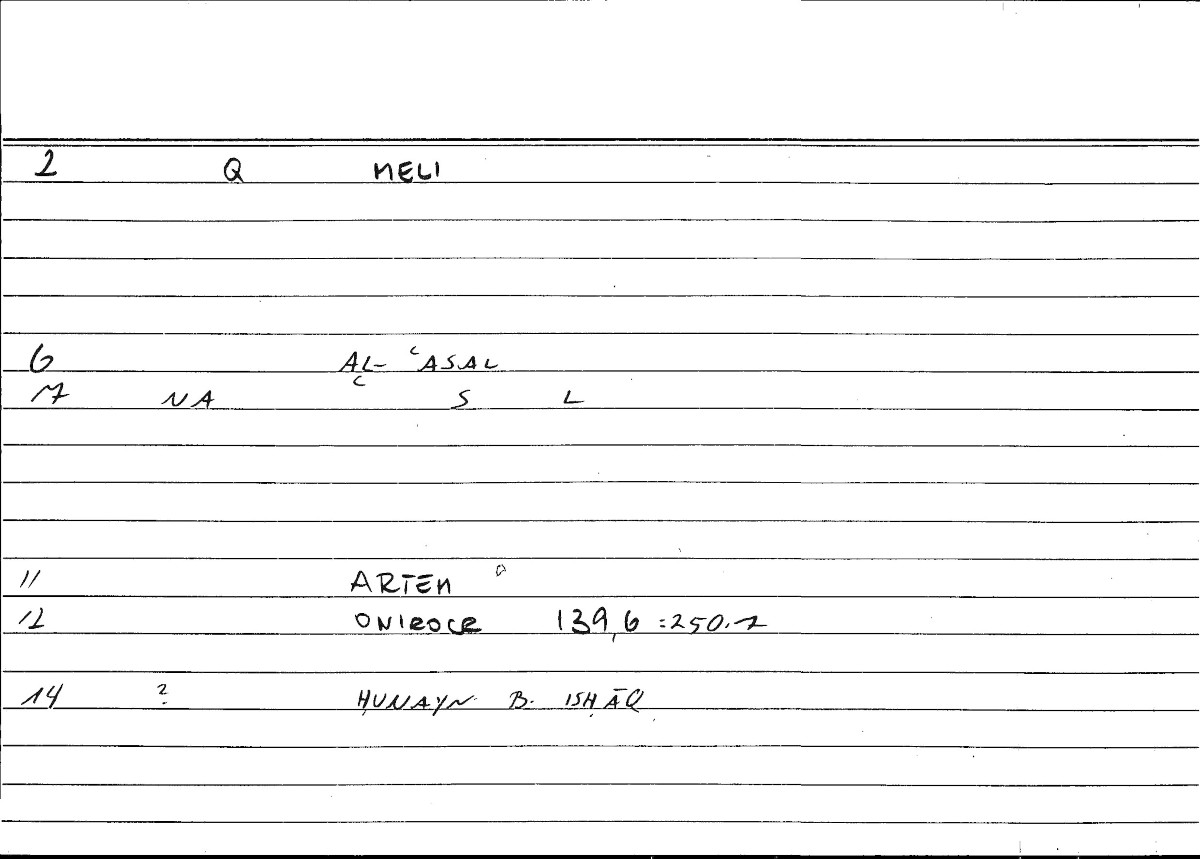 2 Q MELI
6 AL- ʿASAL
7 NA ʿ S L
11 ARTEM
12 ONIROCR 139,6 =250.2
14 ? ḤUNAYN B. ISḤĀQ